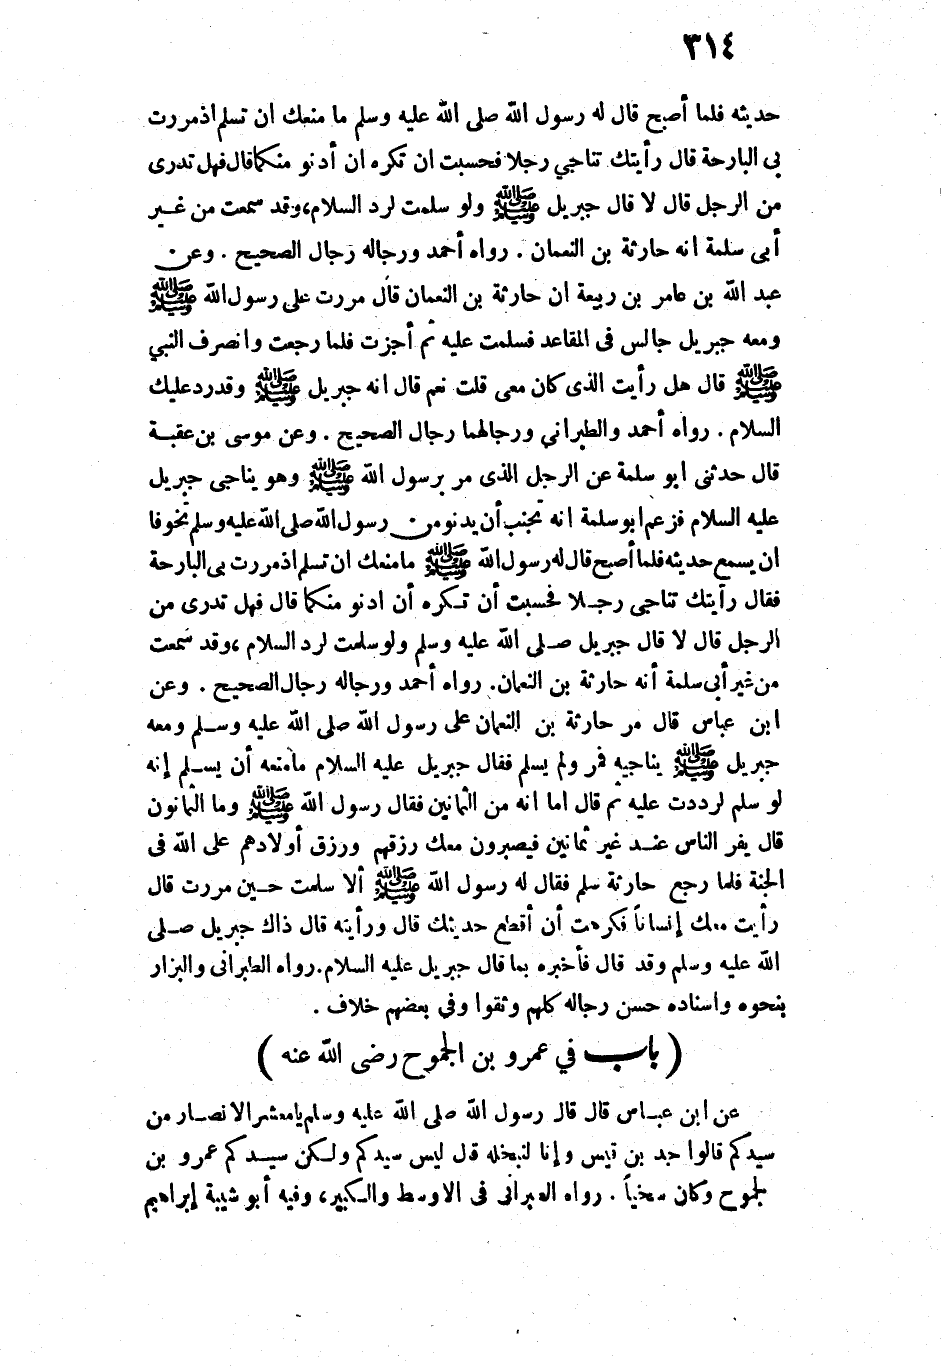 ٣١٤
حديثه فلما أصبح قال له رسول الله صلى الله عليه وسلم ما منعك ان تسلم اذ مررت
بي البارحة قال رأيتك تناجي رجلا فحسبت ان تكره ان أدنو منكما قال فهل تدرى
من الرجل قال لا قال جبريل ﷺ ولو سلمت لرد السلام، وقد سمعت من غير
أبى سلمة انه حارثة بن النعمان . رواه أحمد ورجاله رجال الصحيح . وعن
عبد الله بن عامر بن ربيعة ان حارثة بن النعمان قال مررت على رسول الله ﷺ
ومعه جبريل جالس فى المقاعد فسلمت عليه ثم أجزت فلما رجعت وانصرف النبي
ﷺ قال هل رأيت الذى كان معى قلت نعم قال انه جبريل ﷺ وقد رد عليك
السلام . رواه أحمد والطبراني ورجالهما رجال الصحيح . وعن موسى بن عقبة
قال حدثنى ابو سلمة عن الرجل الذى مر برسول الله ﷺ وهو يناجى جبريل
عليه السلام فزعم ابو سلمة انه تجنب أن يدنو من رسول الله صلى الله عليه وسلم تخوفا
ان يسمع حديثه فلما أصبح قال له رسول الله ﷺ مامنعك ان تسلم اذ مررت بى البارحة
فقال رأيتك تناجى رجلا فحسبت أن تكره أن ادنو منكما قال فهل تدرى من
الرجل قال لا قال جبريل صلى الله عليه وسلم ولو سلمت لرد السلام ، وقد سمعت
من غير أبى سلمة أنه حارثة بن النعمان. رواه أحمد ورجاله رجال الصحيح . وعن
ابن عباس قال مر حارثة بن النعمان على رسول الله صلى الله عليه وسلم ومعه
جبريل ﷺ يناجيه فمر ولم يسلم فقال جبريل عليه السلام مامنعه أن يسلم إنه
لو سلم لرددت عليه ثم قال اما انه من الثمانين فقال رسول الله ﷺ وما الثمانون
قال يفر الناس عنك غير ثمانين فيصبرون معك رزقهم ورزق أولادهم على الله فى
الجنة فلما رجع حارثة سلم فقال له رسول الله ﷺ ألا سلمت حين مررت قال
رأيت معك إنساناً فكرهت أن أقطع حديثك قال ورأيته قال ذاك جبريل صلى
الله عليه وسلم وقد قال فأخبره بما قال جبريل عليه السلام. رواه الطبرانى والبزار
بنحوه واسناده حسن رجاله كلهم وثقوا وفي بعضهم خلاف .
( باب في عمرو بن الجموح رضى الله عنه )
عن ابن عباس قال قال رسول الله صلى الله عليه وسلم يا معشر الانصار من
سيدكم قالوا جد بن قيس وإنا لنبخله قال ليس سيدكم ولكن سيدكم عمرو بن
لجموح وكان سخياً . رواه الطبرانى فى الاوسط والكبير، وفيه أبو شيبة إبراهيم